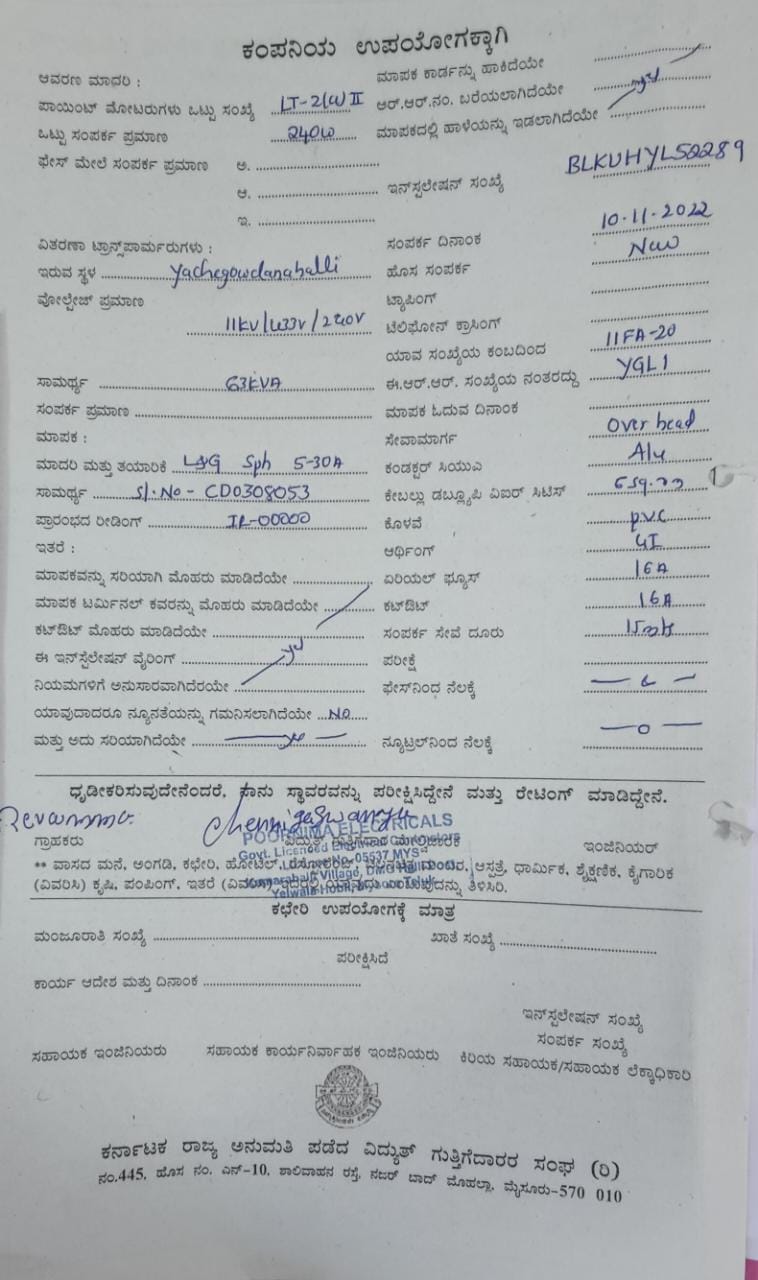 ಕಂಪನಿಯ ಉಪಯೋಗಕ್ಕಾಗಿ
ಆವರಣ ಮಾದರಿ : ಮಾಪಕ ಕಾರ್ಡನ್ನು ಹಾಕಿದೆಯೇ
ಪಾಯಿಂಟ್ ಮೋಟರುಗಳು ಒಟ್ಟು ಸಂಖ್ಯೆ LT-2(a) II ಆರ್.ಆರ್.ನಂ. ಬರೆಯಲಾಗಿದೆಯೇ yes
ಒಟ್ಟು ಸಂಪರ್ಕ ಪ್ರಮಾಣ 240W ಮಾಪಕದಲ್ಲಿ ಹಾಳೆಯನ್ನು ಇಡಲಾಗಿದೆಯೇ
ಫೇಸ್ ಮೇಲೆ ಸಂಪರ್ಕ ಪ್ರಮಾಣ ಅ.
ಆ. ಇನ್‌ಸ್ಟಲೇಷನ್ ಸಂಖ್ಯೆ BLKUHYL52289
ಇ.
ವಿತರಣಾ ಟ್ರಾನ್ಸ್‌ಪಾರ್ಮರುಗಳು : ಸಂಪರ್ಕ ದಿನಾಂಕ 10-11-2022
ಇರುವ ಸ್ಥಳ Yachegowdanahalli ಹೊಸ ಸಂಪರ್ಕ New
ವೋಲ್ಟೇಜ್ ಪ್ರಮಾಣ ಟ್ಯಾಪಿಂಗ್
11KV/433V/240V ಟೆಲಿಫೋನ್ ಕ್ರಾಸಿಂಗ್
ಯಾವ ಸಂಖ್ಯೆಯ ಕಂಬದಿಂದ 11FA-20
ಸಾಮರ್ಥ್ಯ 63KVA ಈ.ಆರ್.ಆರ್. ಸಂಖ್ಯೆಯ ನಂತರದ್ದು YGL1
ಸಂಪರ್ಕ ಪ್ರಮಾಣ ಮಾಪಕ ಓದುವ ದಿನಾಂಕ
ಮಾಪಕ : ಸೇವಾಮಾರ್ಗ Over head
ಮಾದರಿ ಮತ್ತು ತಯಾರಿಕೆ L&G Sph 5-30A ಕಂಡಕ್ಟರ್ ಸಿಯುವಿ Alu
ಸಾಮರ್ಥ್ಯ Sl.No - CD0308053 ಕೇಬಲ್ಲು ಡಬ್ಲ್ಯೂಪಿ ಏಐರ್ ಸಿಟಿಸ್ 6 sq.mm
ಪ್ರಾರಂಭದ ರೀಡಿಂಗ್ IR-00000 ಕೊಳವೆ p.v.c
ಇತರೆ : ಆರ್ಥಿಂಗ್ GI
ಮಾಪಕವನ್ನು ಸರಿಯಾಗಿ ಮೊಹರು ಮಾಡಿದೆಯೇ ಏರಿಯಲ್ ಫ್ಯೂಸ್ 16A
ಮಾಪಕ ಟರ್ಮಿನಲ್ ಕವರನ್ನು ಮೊಹರು ಮಾಡಿದೆಯೇ ಕಟ್‌ಔಟ್ 16A
ಕಟ್‌ಔಟ್ ಮೊಹರು ಮಾಡಿದೆಯೇ ಸಂಪರ್ಕ ಸೇವೆ ದೂರು 15mts
ಈ ಇನ್‌ಸ್ಟಲೇಷನ್ ವೈರಿಂಗ್ yes ಪರೀಕ್ಷೆ
ನಿಯಮಗಳಿಗೆ ಅನುಸಾರವಾಗಿದೆರಯೇ ಫೇಸ್‌ನಿಂಧ ನೆಲಕ್ಕೆ
ಯಾವುದಾದರೂ ನ್ಯೂನತೆಯನ್ನು ಗಮನಿಸಲಾಗಿದೆಯೇ No
ಮತ್ತು ಅದು ಸರಿಯಾಗಿದೆಯೇ yes ನ್ಯೂಟ್ರಲ್‌ನಿಂದ ನೆಲಕ್ಕೆ — 0 —
ಧೃಡೀಕರಿಸುವುದೇನೆಂದರೆ, ನಾನು ಸ್ಥಾವರವನ್ನು ಪರೀಕ್ಷಿಸಿದ್ದೇನೆ ಮತ್ತು ರೇಟಿಂಗ್ ಮಾಡಿದ್ದೇನೆ.
POORNIMA ELECTRICALS
ಗ್ರಾಹಕರು ವಿದ್ಯುತ್ ಗುತ್ತಿಗೆದಾರ ಮೇಲ್ವಿಚಾರಕ ಇಂಜಿನಿಯರ್
Govt. Licenced Electrical Contractors
** ವಾಸದ ಮನೆ, ಅಂಗಡಿ, ಕಛೇರಿ, ಹೋಟೆಲ್, ಆಸ್ಪತ್ರೆ, ಧಾರ್ಮಿಕ, ಶೈಕ್ಷಣಿಕ, ಕೈಗಾರಿಕ
05537 MYS
(ವಿವರಿಸಿ) ಕೃಷಿ, ಪಂಪಿಂಗ್, ಇತರೆ ತಿಳಿಸಿರಿ.
ಕಛೇರಿ ಉಪಯೋಗಕ್ಕೆ ಮಾತ್ರ
ಮಂಜೂರಾತಿ ಸಂಖ್ಯೆ ಖಾತೆ ಸಂಖ್ಯೆ
ಪರೀಕ್ಷಿಸಿದೆ
ಕಾರ್ಯ ಆದೇಶ ಮತ್ತು ದಿನಾಂಕ
ಇನ್‌ಸ್ಟಲೇಷನ್ ಸಂಖ್ಯೆ
ಸಂಪರ್ಕ ಸಂಖ್ಯೆ
ಸಹಾಯಕ ಇಂಜಿನಿಯರು ಸಹಾಯಕ ಕಾರ್ಯನಿರ್ವಾಹಕ ಇಂಜಿನಿಯರು ಕಿರಿಯ ಸಹಾಯಕ/ಸಹಾಯಕ ಲೆಕ್ಕಾಧಿಕಾರಿ
ಕರ್ನಾಟಕ ರಾಜ್ಯ ಅನುಮತಿ ಪಡೆದ ವಿದ್ಯುತ್ ಗುತ್ತಿಗೆದಾರರ ಸಂಘ (ರಿ)
ನಂ.445, ಹೊಸ ನಂ. ಎನ್-10, ಶಾಲಿವಾಹನ ರಸ್ತೆ, ನಜರ್ ಬಾದ್ ಮೊಹಲ್ಲಾ, ಮೈಸೂರು-570 010